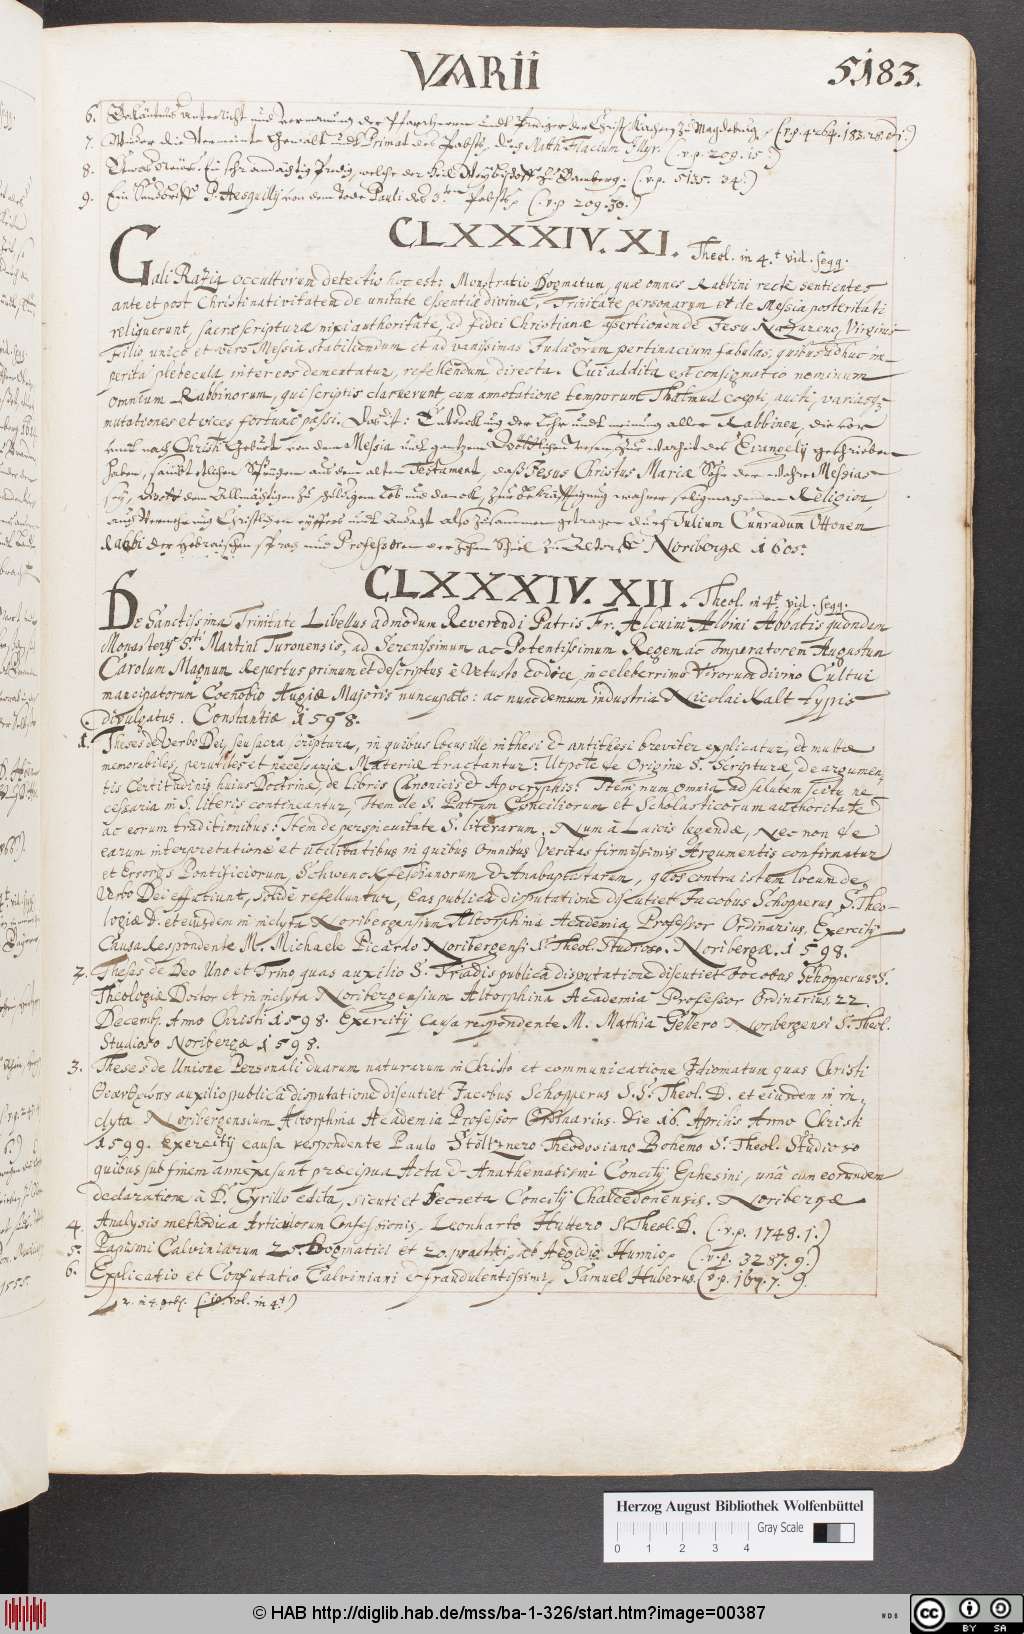 VARII
5183.
6. Bekäntnus Unterricht und vermanung der Pfarrherrn undt Prediger der Christl. Kirchen zu Magdeburg. (:v.p. 4264. 183. 28.:)
7. Wider die Vermeinte Gewalt undt Primat des Pabsts, durch Matth. Flacium Illyr. (:v.p. 209. 15:)
8. Etwas Neues. Ein sehr andächtig Predig, welche der Weybischoff zu Bamberg. (:v.p. 5135. 34:)
9. Ein Sendtbrieff P. Aesquillij von dem Tode Pauli des 3.ten Pabsts. (:v.p. 209. 30.:)
CLXXXIV. XI. Theol. in 4.t vid. seqq.
Gali Razia occultorum detectio hoc est: Monstratio Dogmatum, quæ omnes Rabbini recte sentientes
ante et post Christi nativitatem de unitate essentiæ divinæ, Trinitate personarum et de Messia posteritati
reliquerunt, sacræ scripturæ nixi authoritate, ad fidei Christianæ assertionem de Jesu Nazareno, Virginis
Filio unico et vero Messia stabiliendum et ad vanissimas Judæorum pertinacium fabulas, quibus adhuc im
perita plebecula inter eos dementatur, refellendum directa. Cui addita est consignatio nominum
omnium Rabbinorum, qui scriptis claruerunt, cum annotatione temporum Thalmud coepti, aucti, variasq3
mutationes et vices fortunæ passi. Das ist: Entdeckung der Lehr undt meinung aller Rabbinen, die vor
undt nach Christi Geburt von dem Messia undt gantzem Göttlichen wesen, zur warheit des Evangely geschrieben
haben, sampt etlichen Sprüchen aus dem alten Testament, daß Jesus Christus Mariæ Sohn der wahre Messias
sey, Gott dem Allmächtigen zu schuldigem Lob und danck, zur bekräfftigung wahrer seligmachenden Religion,
aus Vermehrung Christlichen eyffers undt Andacht also zusammen getragen durch Julium Cunradum Ottonem
Rabbi der Hebraischen sprach und Professorem der hohen Schul zu Altorff Noribergæ 1605.
CLXXXIV. XII. Theol. in 4.t vid. seqq.
De Sanctissima Trinitate Libellus admodum Reverendi Patris Fr. Alcuini Albini Abbatis quondam
Monasterij S.ti Martini Turonensis, ad Serenissimum ac Potentissimum Regem ac Imperatorem Augustum
Carolum Magnum Repertus primum et descriptus è Vetusto codice, in celeberrimo Virorum divino Cultui
mancipatorum Coenobio Augiæ Majoris nuncupato: ac nunc demum industria Nicolai Kalt typis
divulgatus. Constantiæ 1598.
1. Theses de Verbo Dei, seu sacra scriptura, in quibus locus ille in thesi & antithesi breviter explicatur, et multæ
memorabiles, perutiles et necessariæ Materiæ tractantur: Utpote de Origine S. Scripturæ, de argumen-
tis Certitudinis huius Doctrinæ, de libris Canonicis & Apocryphis: Item, num omnia ad salutem scitu ne
cessaria in S. literis contineantur, Item de S. Patrum Conciliorum et Scholasticorum authoritate
ac eorum traditionibus: Item de perspicuitate S. literarum. Num à Laicis legendæ, nec non de
earum interpretatione et utilitatibus in quibus Omnibus Veritas firmissimis Argumentis confirmatur
et Errores Pontificiorum, Schwenckfeldianorum & Anabaptistarum, quos contra istum locum de
Verbo Dei effutiunt, solide refelluntur, Eas publica disputatione discutiet Jacobus Schopperus S. Theo-
logiæ D. et eiusdem in inclyta Noribergensium Altorphina Academia Professor Ordinarius, Exercitij
Causa Respondente M. Michaele Picardo Noribergensi S. Theol. Studioso. Noribergæ. 1598.
2. Theses de Deo Uno et Trino quas auxilio S. Triadis publica disputatione discutiet Jacobus Schopperus S.
Theologiæ Doctor et in inclyta Noribergensium Altorphina Academia Professor Ordinarius. 22.
Decemb. Anno Christi 1598. Exercitij causa respondente M. Mathia Gellero Noribergensi S. Theol.
Studioso Noribergæ 1598.
3. Theses de Unione Personali duarum naturarum in Christo et communicatione Idiomatum quas Christi
Θεανθρώπου auxilio publica disputatione discutiet Jacobus Schopperus S.S. Theol. D. et eiusdem in in-
clyta Noribergensium Altorphina Academia Professor Ordinarius. Die 16. Aprilis Anno Christi
1599. Exercitij causa respondente Paulo Stöltznero Theodosiano Bohemo S. Theol. Studioso
quibus sub finem annexa sunt præcipua Acta & Anathematismi Concilij Ephesini, unà cum eorundem
declaratione à D. Cyrillo edita, sicuti et Decreta Concilij Chalcedonensis. Noribergæ
4. Analysis methodica Articulorum Confessionis. Leonharto Huttero S. Theol. D. (:v.p. 1748. 1.)
5. Papismi Calviniarum 25. Dogmatici et 20. practici, ab Aegidio Hunnio. (:v.p. 3287. 9:)
6. Explicatio et Confutatio Calviniani & fraudulentissimi, Samuel Huberus. (v.p. 167. 7. 9.
Herzog August Bibliothek Wolfenbüttel
Gray Scale
0 1 2 3 4
© HAB http://diglib.hab.de/mss/ba-1-326/start.htm?image=00387
WDB
cc BY SA